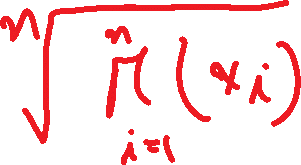 \sqrt[n]{\prod_{i=1}^{n} (x_i)}